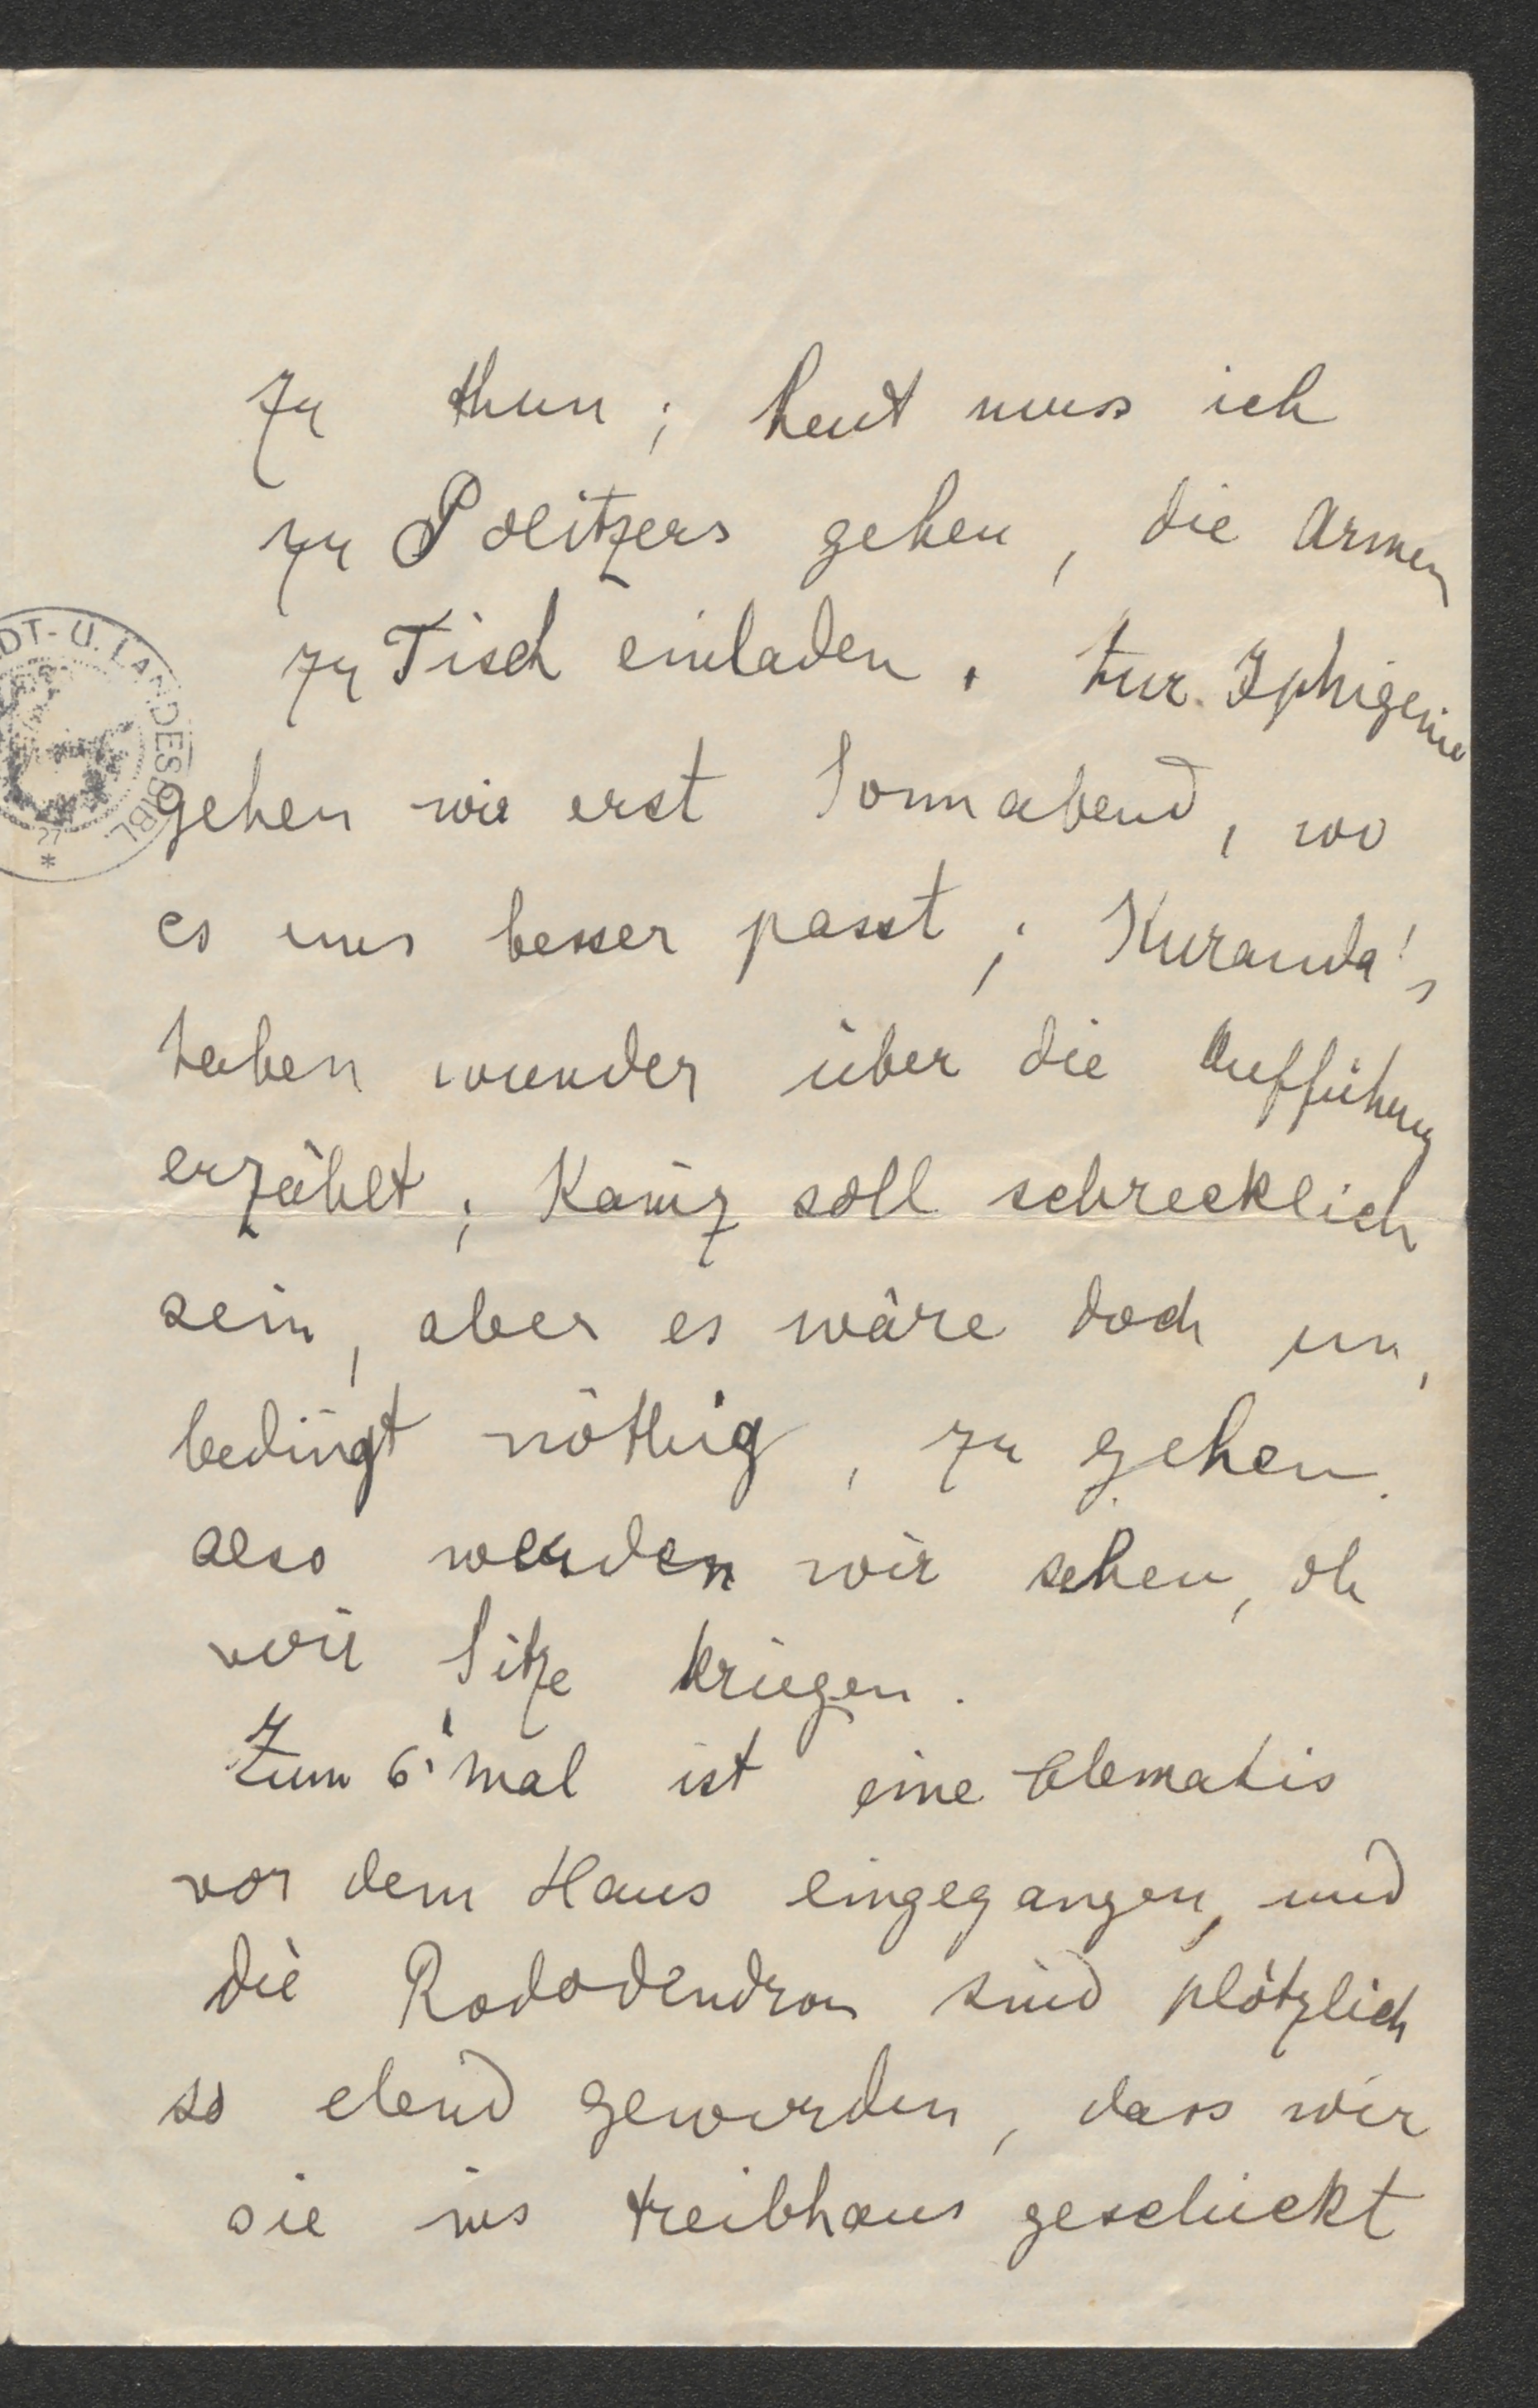 zu thun; heut muss ich
zu Politzers gehen, die Armen
zu Tisch einladen. Zur Iphigenie
gehen wir erst Sonnabend, wo
es uns besser passt; Kuranda's
haben wunder über die Aufführung
erzählt; Kainz soll schrecklich
sein, aber es wäre doch un-
bedingt nöthig, zu gehen.
also werden wir sehen, ob
wir Sitze kriegen.
Zum 6' mal ist eine Clematis
vor dem Haus eingegangen, und
die Rododendron sind plötzlich
so elend geworden, dass wir
sie ins treibhaus geschickt
DT- U. LANDESBIBL
27
*